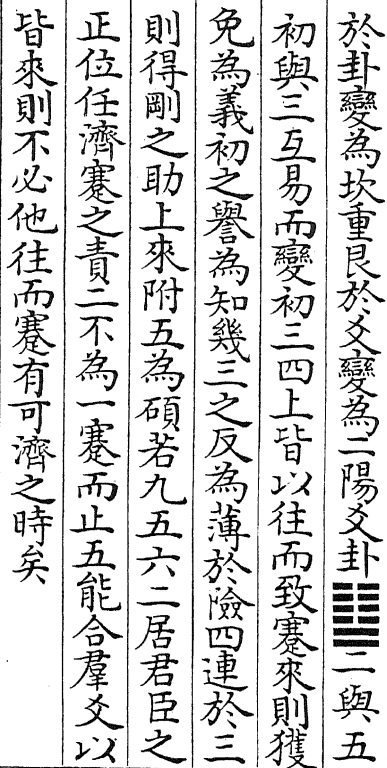 於卦變為坎重艮於爻變為二陽爻卦䷒二與五
初與三互易而變初三四上皆以往而致蹇來則獲
免為義初之譽為知幾三之反為薄於險四連於三
則得剛之助上來附五為碩若九五六二居君臣之
正位任濟蹇之責二不為一蹇而止五能合羣爻以
皆來則不必他往而蹇有可濟之時矣